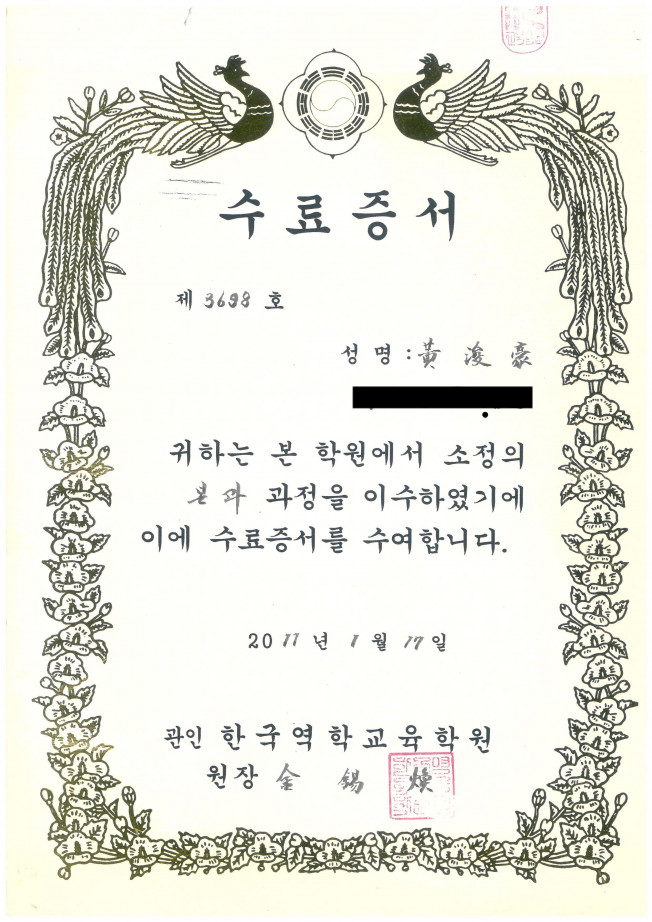 수료증서
제 3698 호
성명 : 黃 浚 豪
귀하는 본 학원에서 소정의
본과 과정을 이수하였기에
이에 수료증서를 수여합니다.
2011년 1월 17일
관인 한국역학교육학원
원장 金 錫 煥